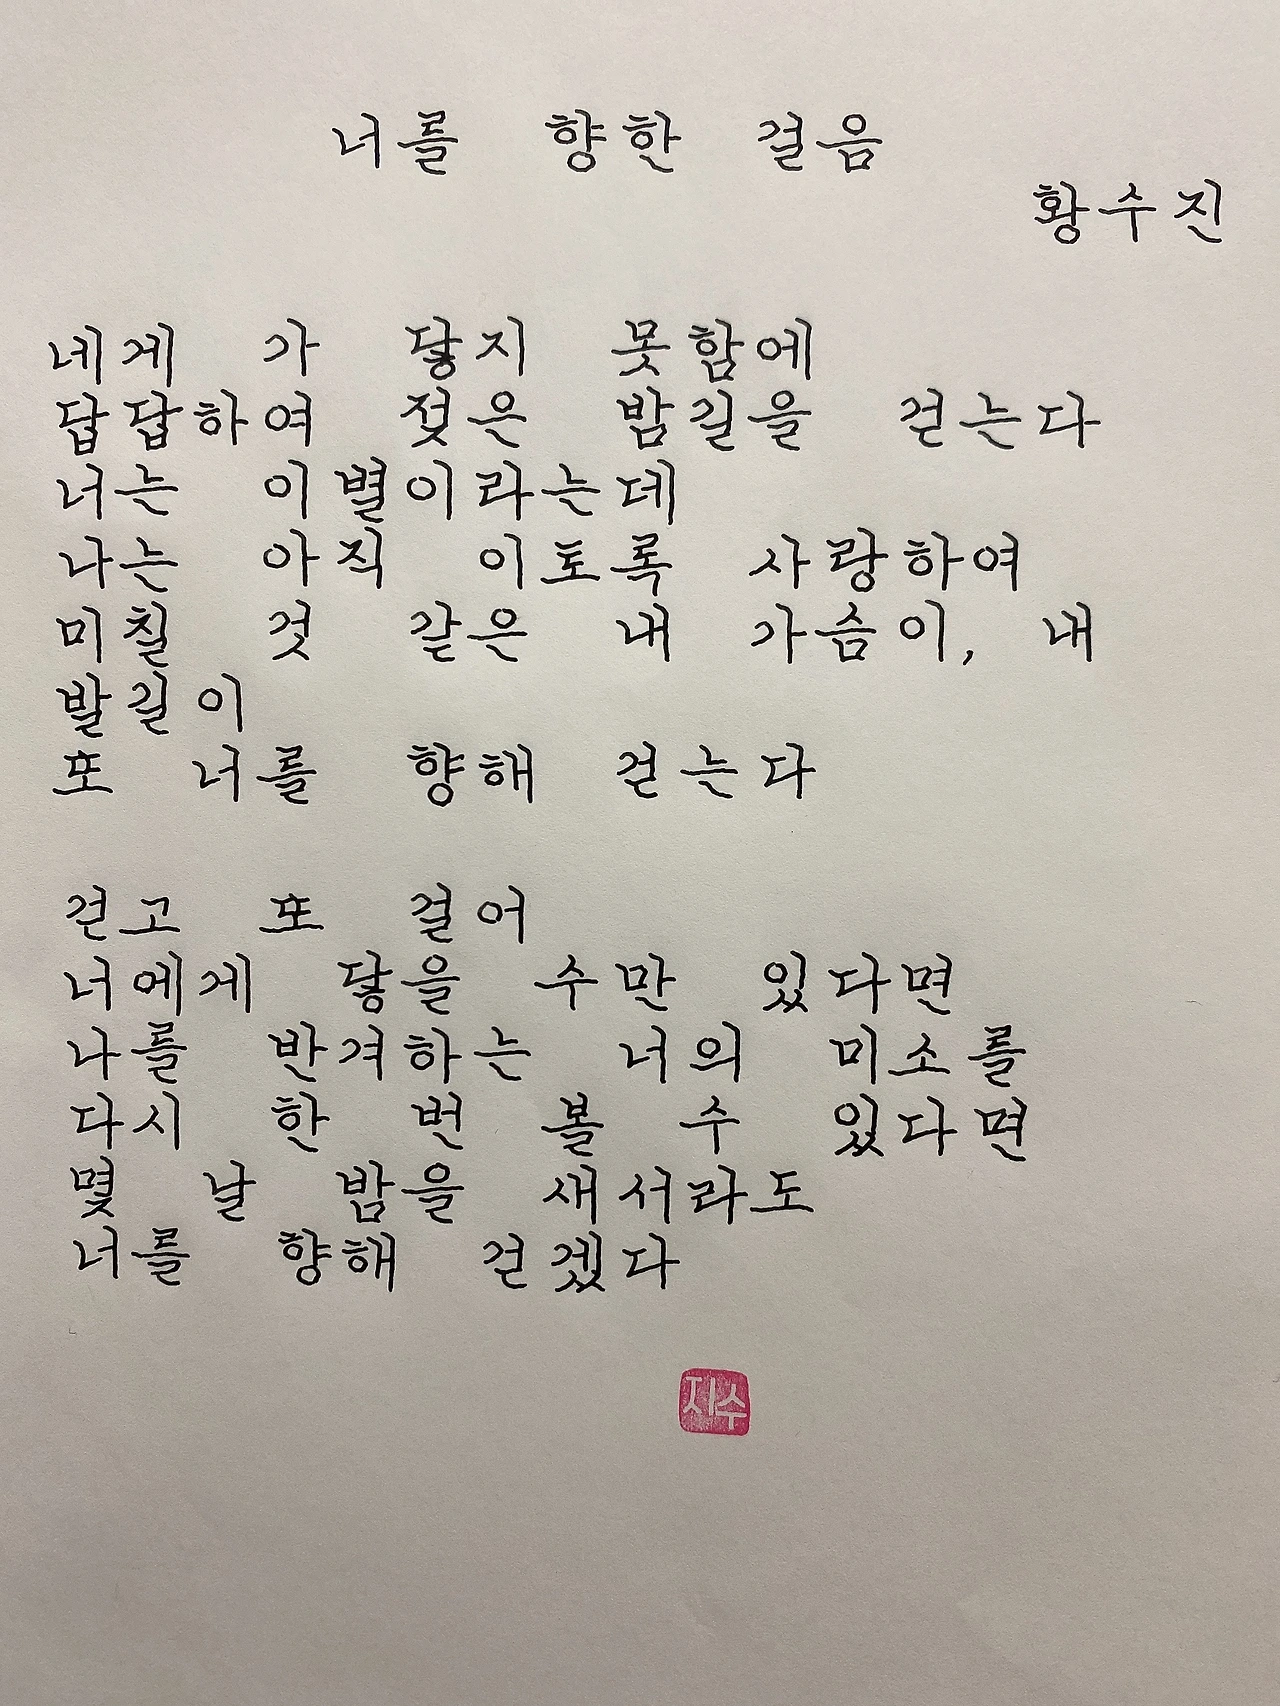 너를 향한 걸음
황수진
네게 가 닿지 못함에
답답하여 젖은 밤길을 걷는다
너는 이별이라는데
나는 아직 이토록 사랑하여
미칠 것 같은 내 가슴이, 내
발길이
또 너를 향해 걷는다
걷고 또 걸어
너에게 닿을 수만 있다면
나를 반겨하는 너의 미소를
다시 한 번 볼 수 있다면
몇 날 밤을 새서라도
너를 향해 걷겠다
지수